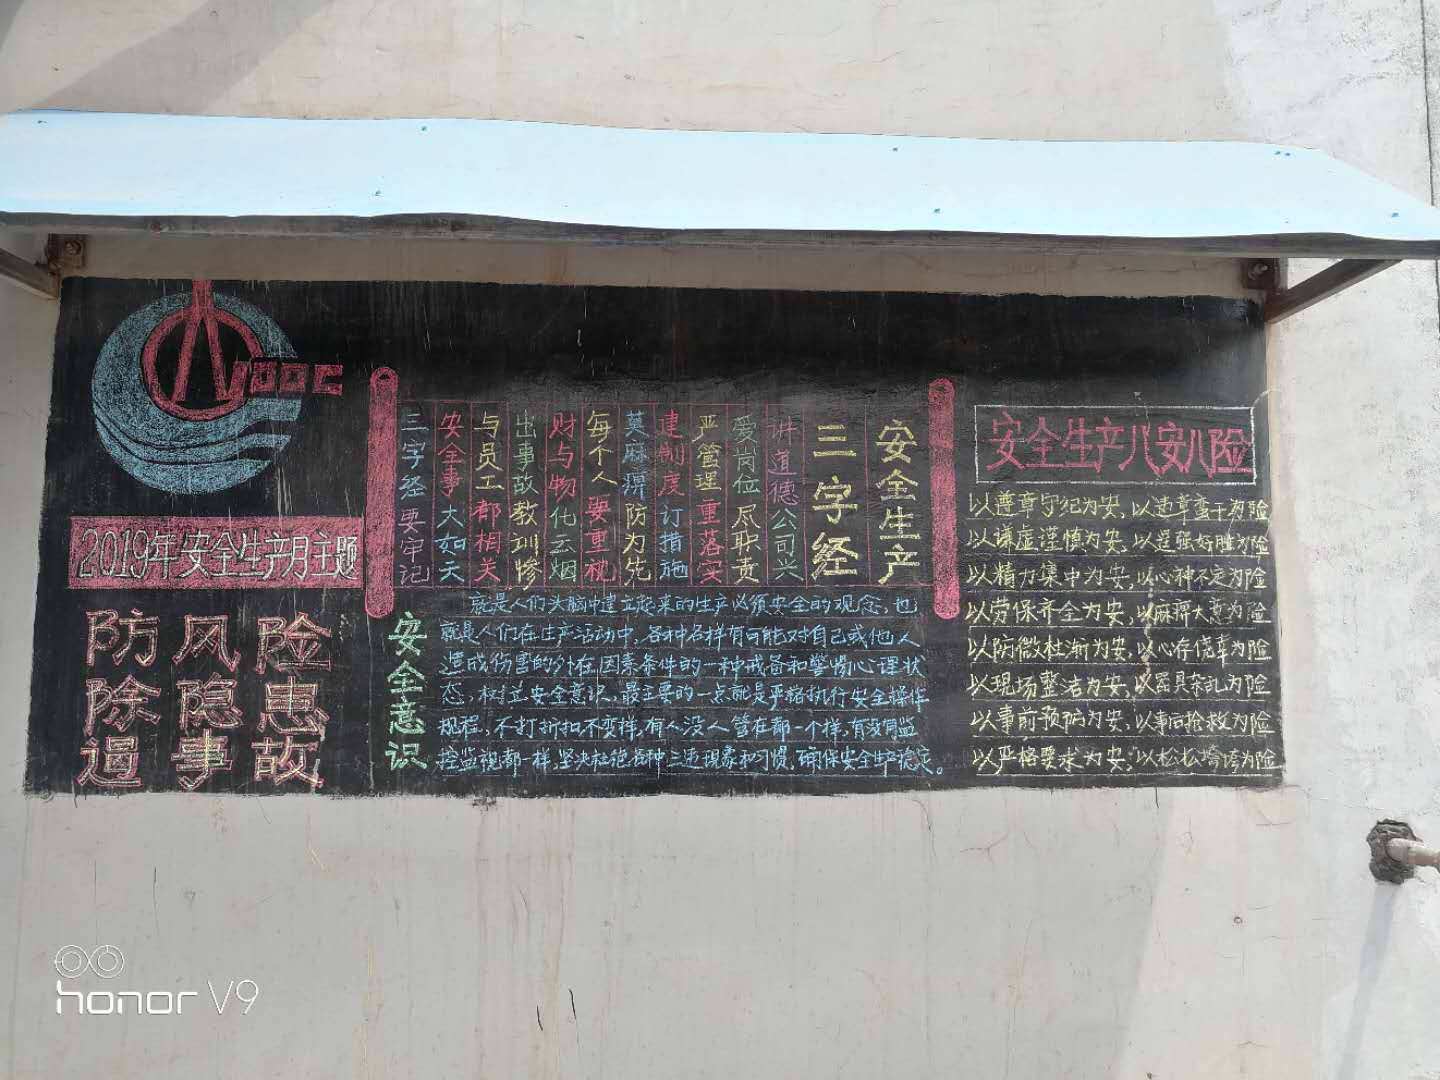 cnooc
2019年安全生产月主题
防风险
除隐患
遏事故
安全生产
三字经
讲道德公司兴
爱岗位尽职责
严管理重落实
建制度订措施
莫麻痹防为先
每个人要重视
财与物化云烟
出事故教训惨
与员工都相关
安全事大如天
三字经要牢记
安全意识
就是人们头脑中建立起来的生产必须安全的观念,也
就是人们在生产活动中,各种各样有可能对自己或他人
造成伤害的外在因素条件的一种戒备和警惕心理状
态,树立安全意识,最主要的一点就是严格执行安全操作
规程,不打折扣不变样,有人没人管在都一个样,有没有监
控监视都一样,坚决杜绝各种三违现象和习惯,确保安全生产稳定。
安全生产八安八险
以遵章守纪为安,以违章蛮干为险
以谦虚谨慎为安,以逞强好胜为险
以精力集中为安,以心神不定为险
以劳保齐全为安,以麻痹大意为险
以防微杜渐为安,以心存侥幸为险
以现场整洁为安,以器具杂乱为险
以事前预防为安,以事后抢救为险
以严格要求为安,以松松垮垮为险
honor V9